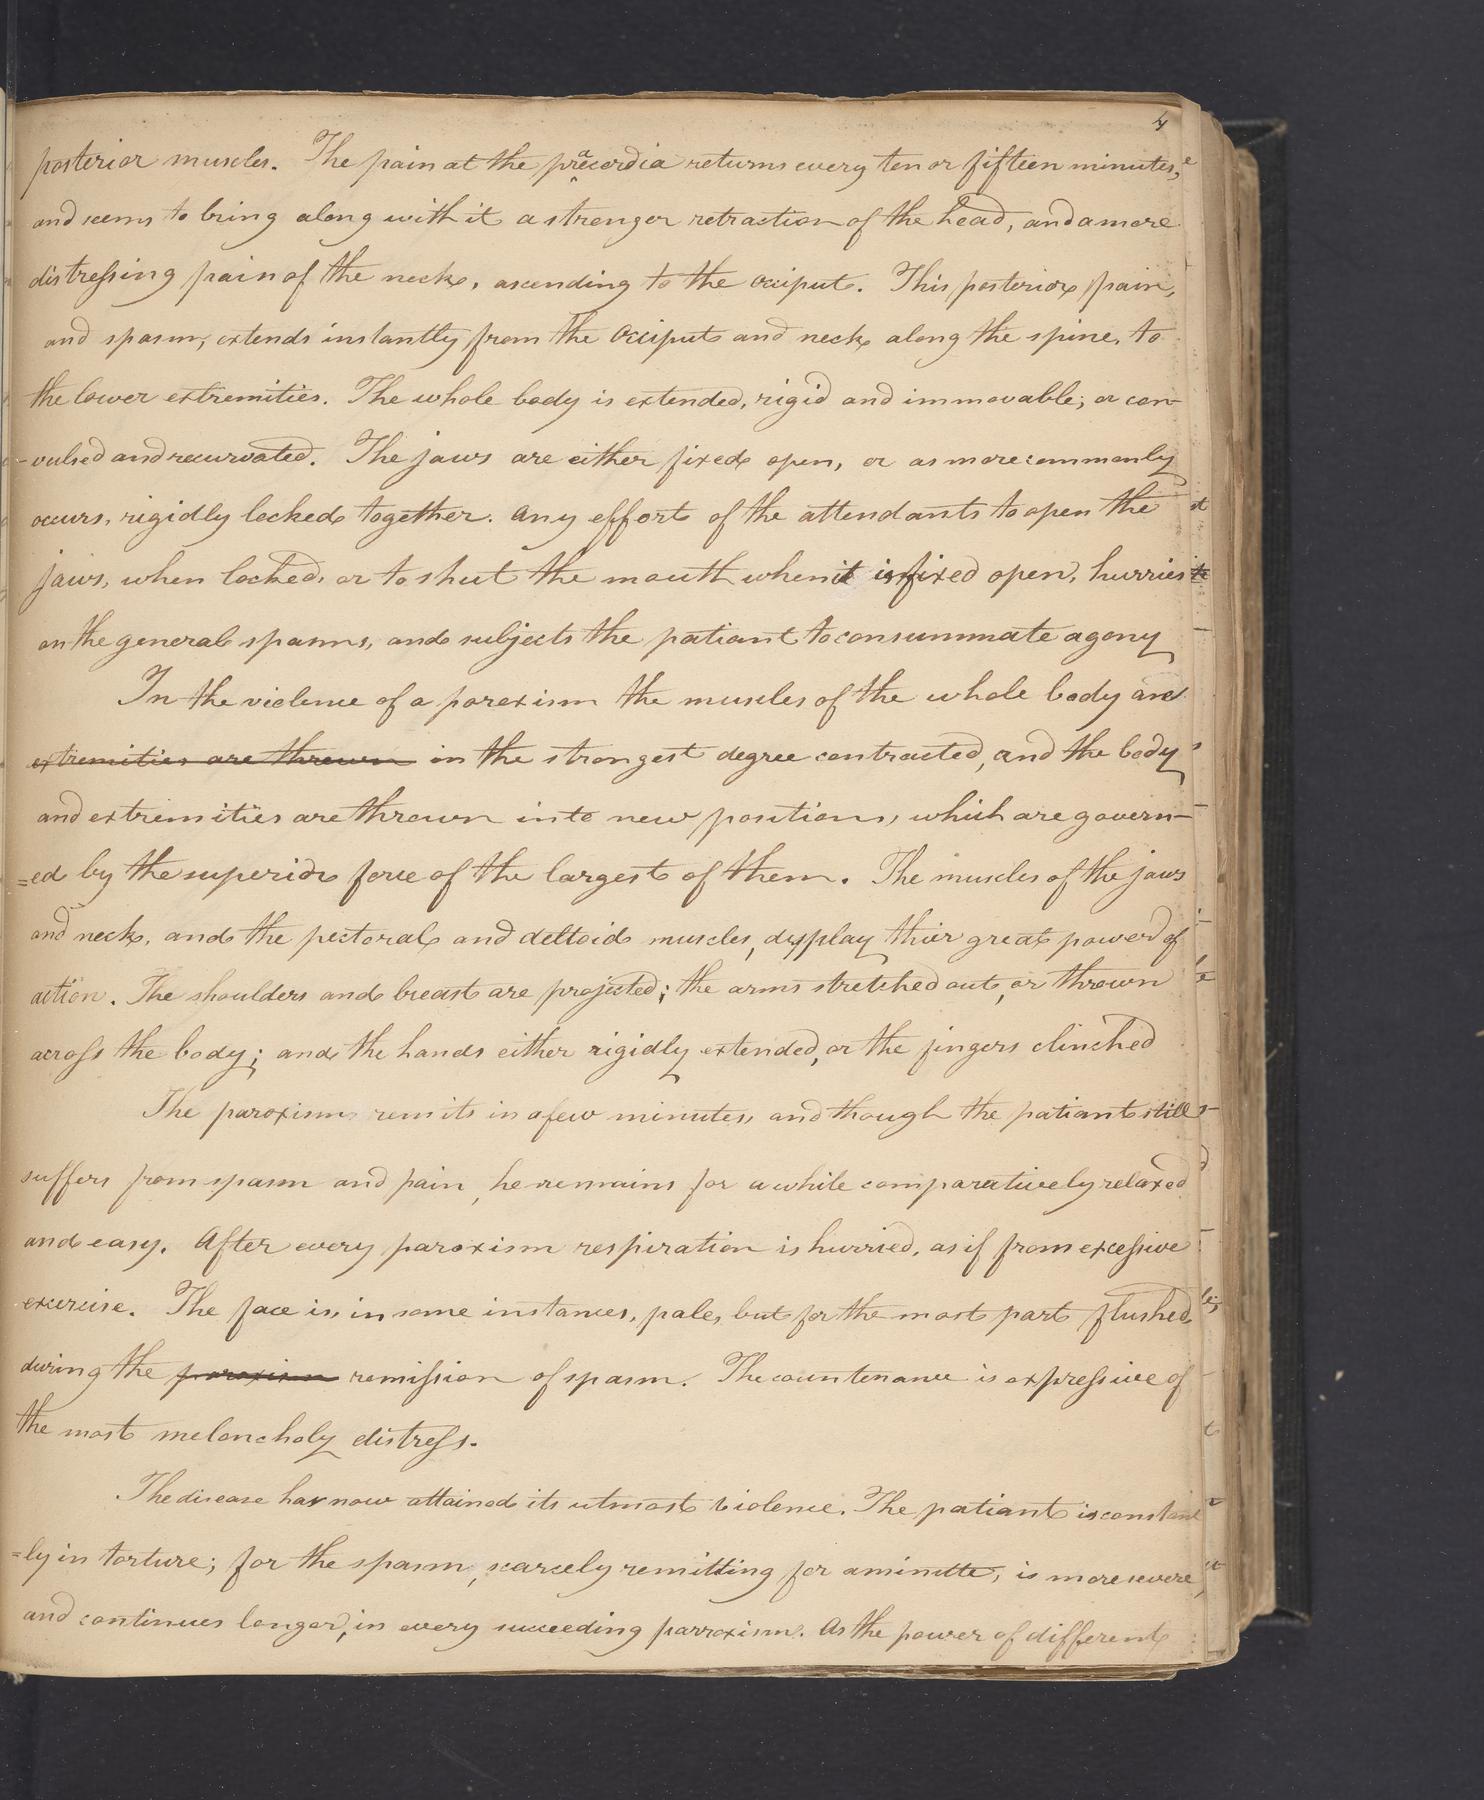 4
posterior muscles. The pain at the præcordia returns every ten or fifteen minutes,
and seems to bring along with it a stronger retraction of the head, and a more
distressing pain of the neck, ascending to the occiput. This posterior pain,
and spasm, extends instantly from the Occiput and neck along the spine, to
the lower extremities. The whole body is extended, rigid and immovable; or con-
-vulsed and recurvated. The jaws are either fixed open, or as more commonly
occurs, rigidly locked together. Any effort of the attendants to open the
jaws, when locked, or to shut the mouth when it is fixed open, hurries
on the general spasms, and subjects the patiant to consummate agony
In the violence of a paroxism the muscles of the whole body are
extremities are thrown in the strongest degree contracted, and the body
and extremities are thrown into new positions, which are govern-
=ed by the superior force of the largest of them. The muscles of the jaws
and neck, and the pectoral and deltoid muscles, display thier great power of
action. The shoulders and breast are projected; the arms stretched out, or thrown
across the body; and the hands either rigidly extended, or the fingers clinched
The paroxism remits in a few minutes, and though the patiant still
suffers from spasm and pain, he remains for a while comparatively relaxed
and easy. After every paroxism respiration is hurried, as if from excessive
exercise. The face is, in some instances, pale, but for the most part flushed
during the paroxism remission of spasm. The countenance is expressive of
the most meloncholy distress.
The disease has now attained its utmost violence. The patiant is constant
=ly in torture; for the spasm, scarcely remitting for a minutte, is more severe,
and continues longer, in every succeeding parroxism. As the power of different